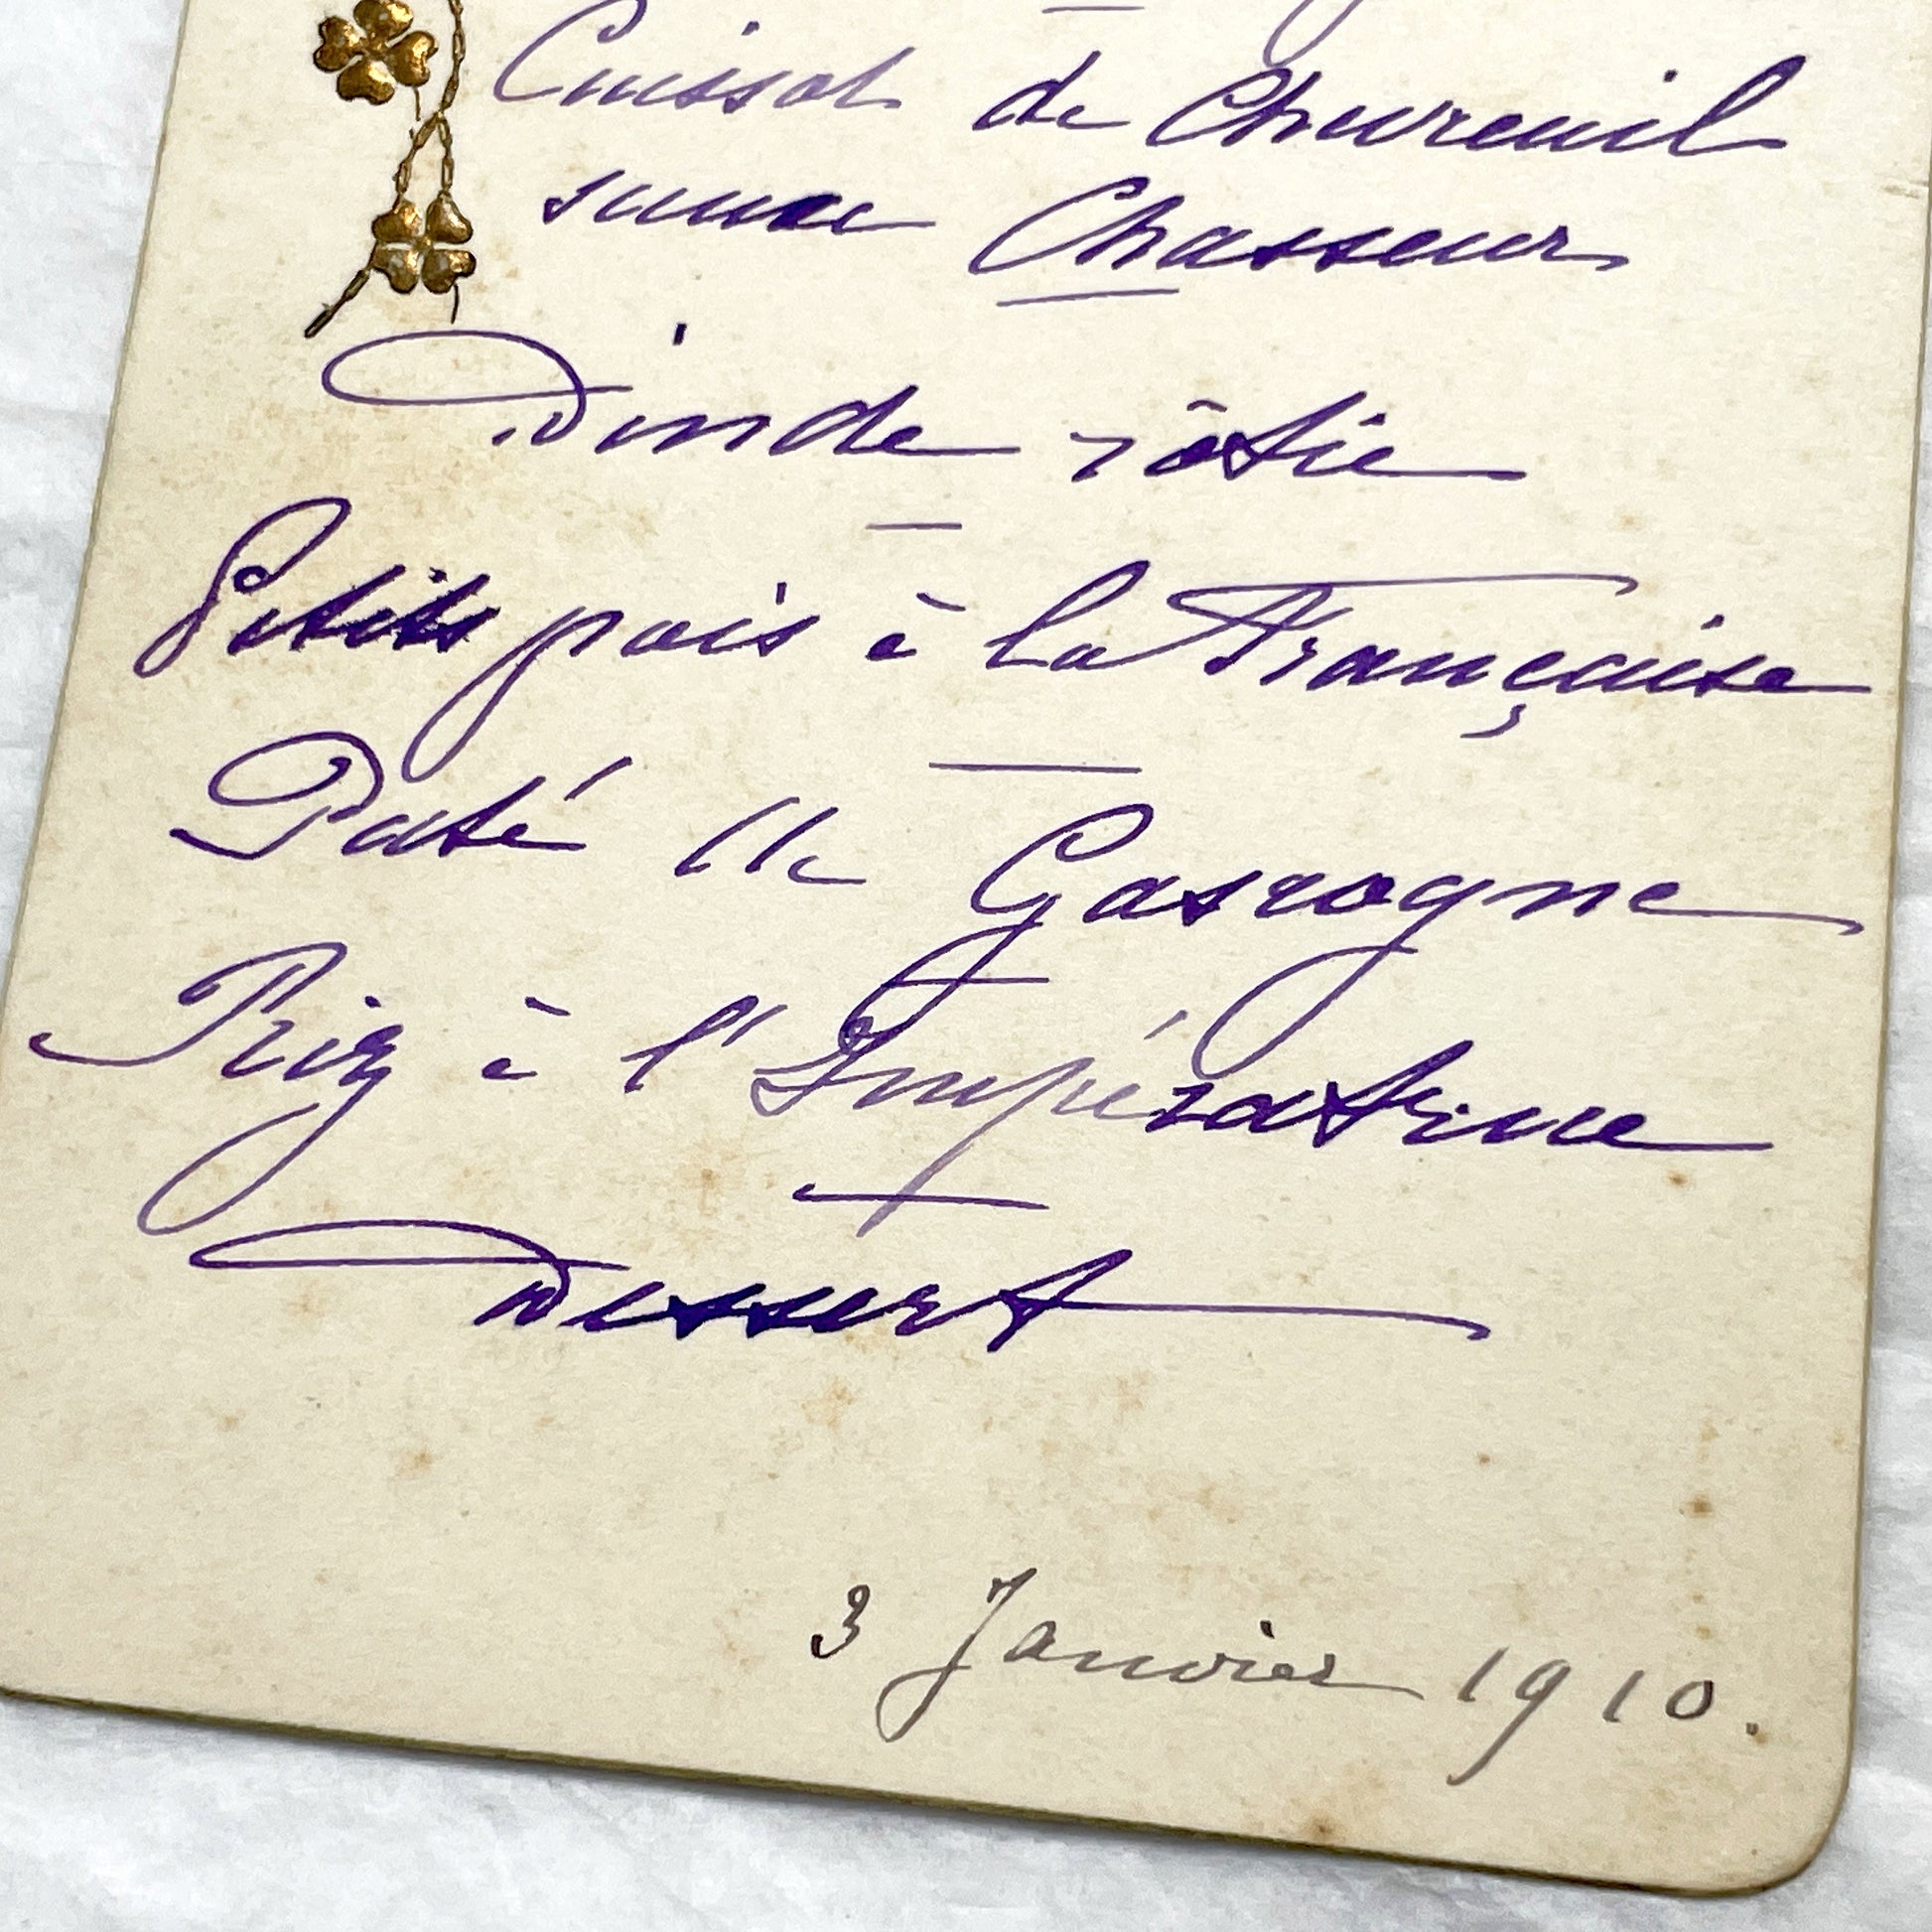 Cuissot de Chevreuil
sauce Chasseur
Dinde rôtie
Petits pois à la Française
Paté de Gascogne
Riz à l'Impératrice
Dessert
3 Janvier 1910.